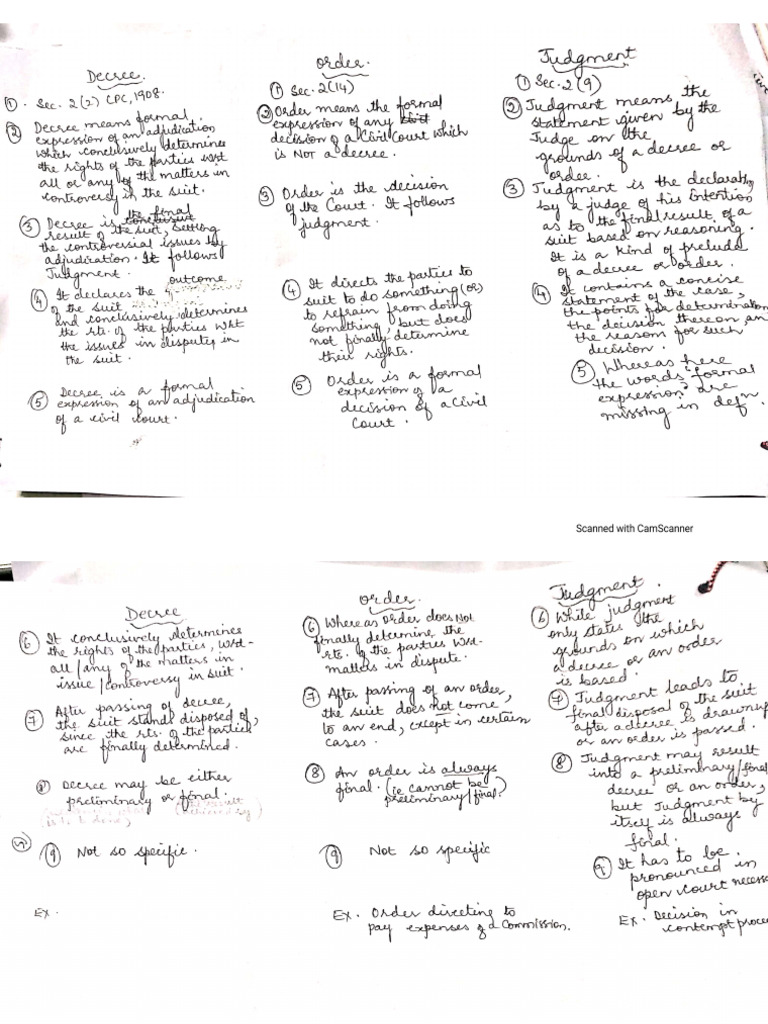 Decree.
① . Sec. 2(2) CPC, 1908.
② Decree means formal
expression of an adjudication
which conclusively determine
the rights of the parties wrt
all or any of the matters in
controversy in the suit.
③ Decree is the final
result of the suit, setting
the controversial issues by
adjudication. It follows
Judgment.
④ It declares the outcome
of the suit
and conclusively determines
the rts. of the parties wrt
the issues in dispute, in
the suit.
⑤ Decree is a formal
expression of an adjudication
of a civil court.
Order.
① Sec. 2(14)
② Order means the formal
expression of any
decision of a Civil Court which
is NOT a decree.
③ Order is the decision
of the Court. It follows
judgment.
④ It directs the parties to
suit to do something (or)
to refrain from doing
something, but does
not finally determine
their rights.
⑤ Order is a formal
expression of a
decision of a Civil
Court.
Judgment
① Sec. 2(9)
② Judgment means the
statement given by the
Judge on the
grounds of a decree or
order.
③ Judgment is the declaratn
by a judge of his intention
as to the final result of a
suit based on reasoning.
It is a kind of prelude
of a decree or order.
④ It contains a concise
statement of the case,
the points for determination
the decision thereon an
the reasons for such
decision.
⑤ Whereas here
the words "formal
expression" are
missing in defn.
Scanned with CamScanner
Decree
⑥ It conclusively determines
the rights of the parties, wrt-
all/any of the matters in
issue/controversy in suit.
⑦ After passing of decree,
the suit stands disposed of,
since the rts. of the parties
are finally determined.
⑧ Decree may be either
preliminary or final.
⑨ Not so specific.
Ex.
Order.
⑥ Whereas Order does NOT
finally determine the
rts. of the parties wrt-
matters in dispute.
⑦ After passing of an order,
the suit does not come
to an end, except in certain
cases.
⑧ An order is always
final. (ie cannot be
preliminary/final)
⑨ Not so specific
Ex. Order directing to
pay expenses of a Commission.
Judgment.
⑥ While judgment
only states the
grounds on which
a decree or an order
is based.
⑦ Judgment leads to
final disposal of the suit
after a decree is drawnup
or an order is passed.
⑧ Judgment may result
into a preliminary/final
decree or an order,
but Judgment by
itself is always
final.
⑨ It has to be
pronounced in
open court necess
Ex. Decision in
contempt proce